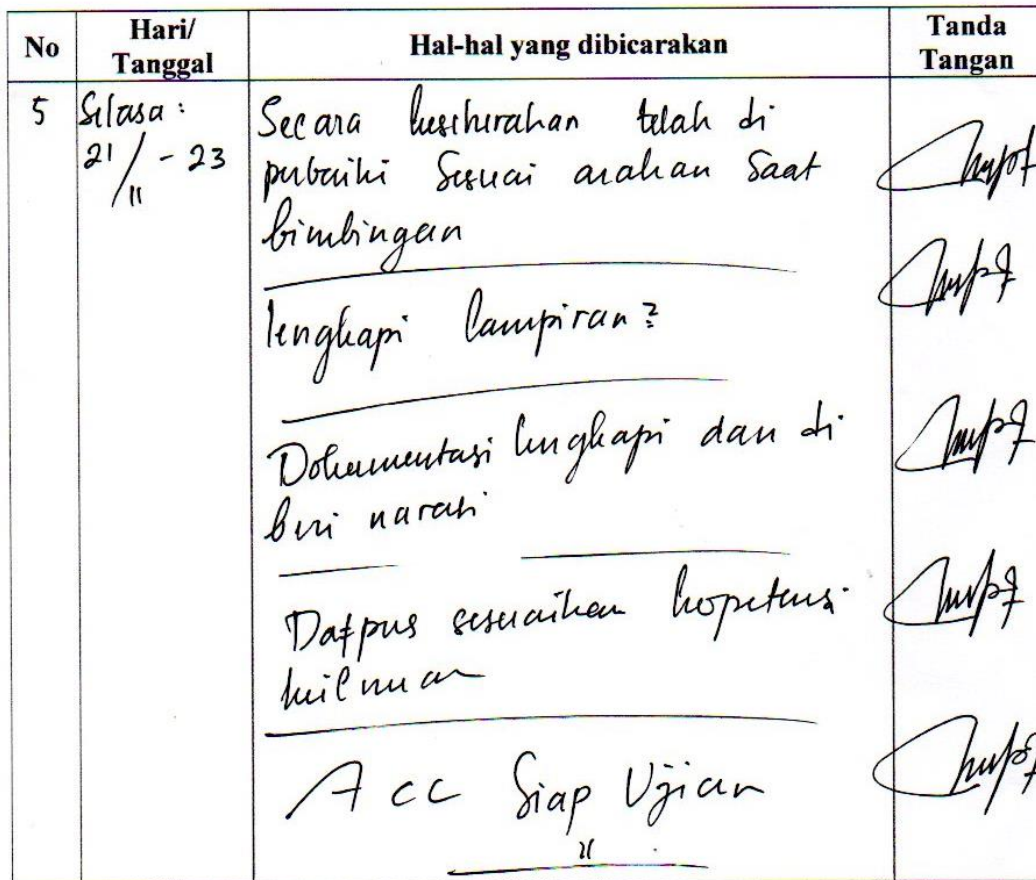 No
Hari/
Tanggal
Hal-hal yang dibicarakan
Tanda
Tangan
5
Selasa :
21/11 - 23
Secara keseluruhan telah di
perbaiki Sesuai arahan Saat
bimbingan
lengkapi lampiran2
Dokumentasi lengkapi dan di
beri narasi
Dafpus sesuaikan kopetensi
keilmuan
Acc Siap Ujian